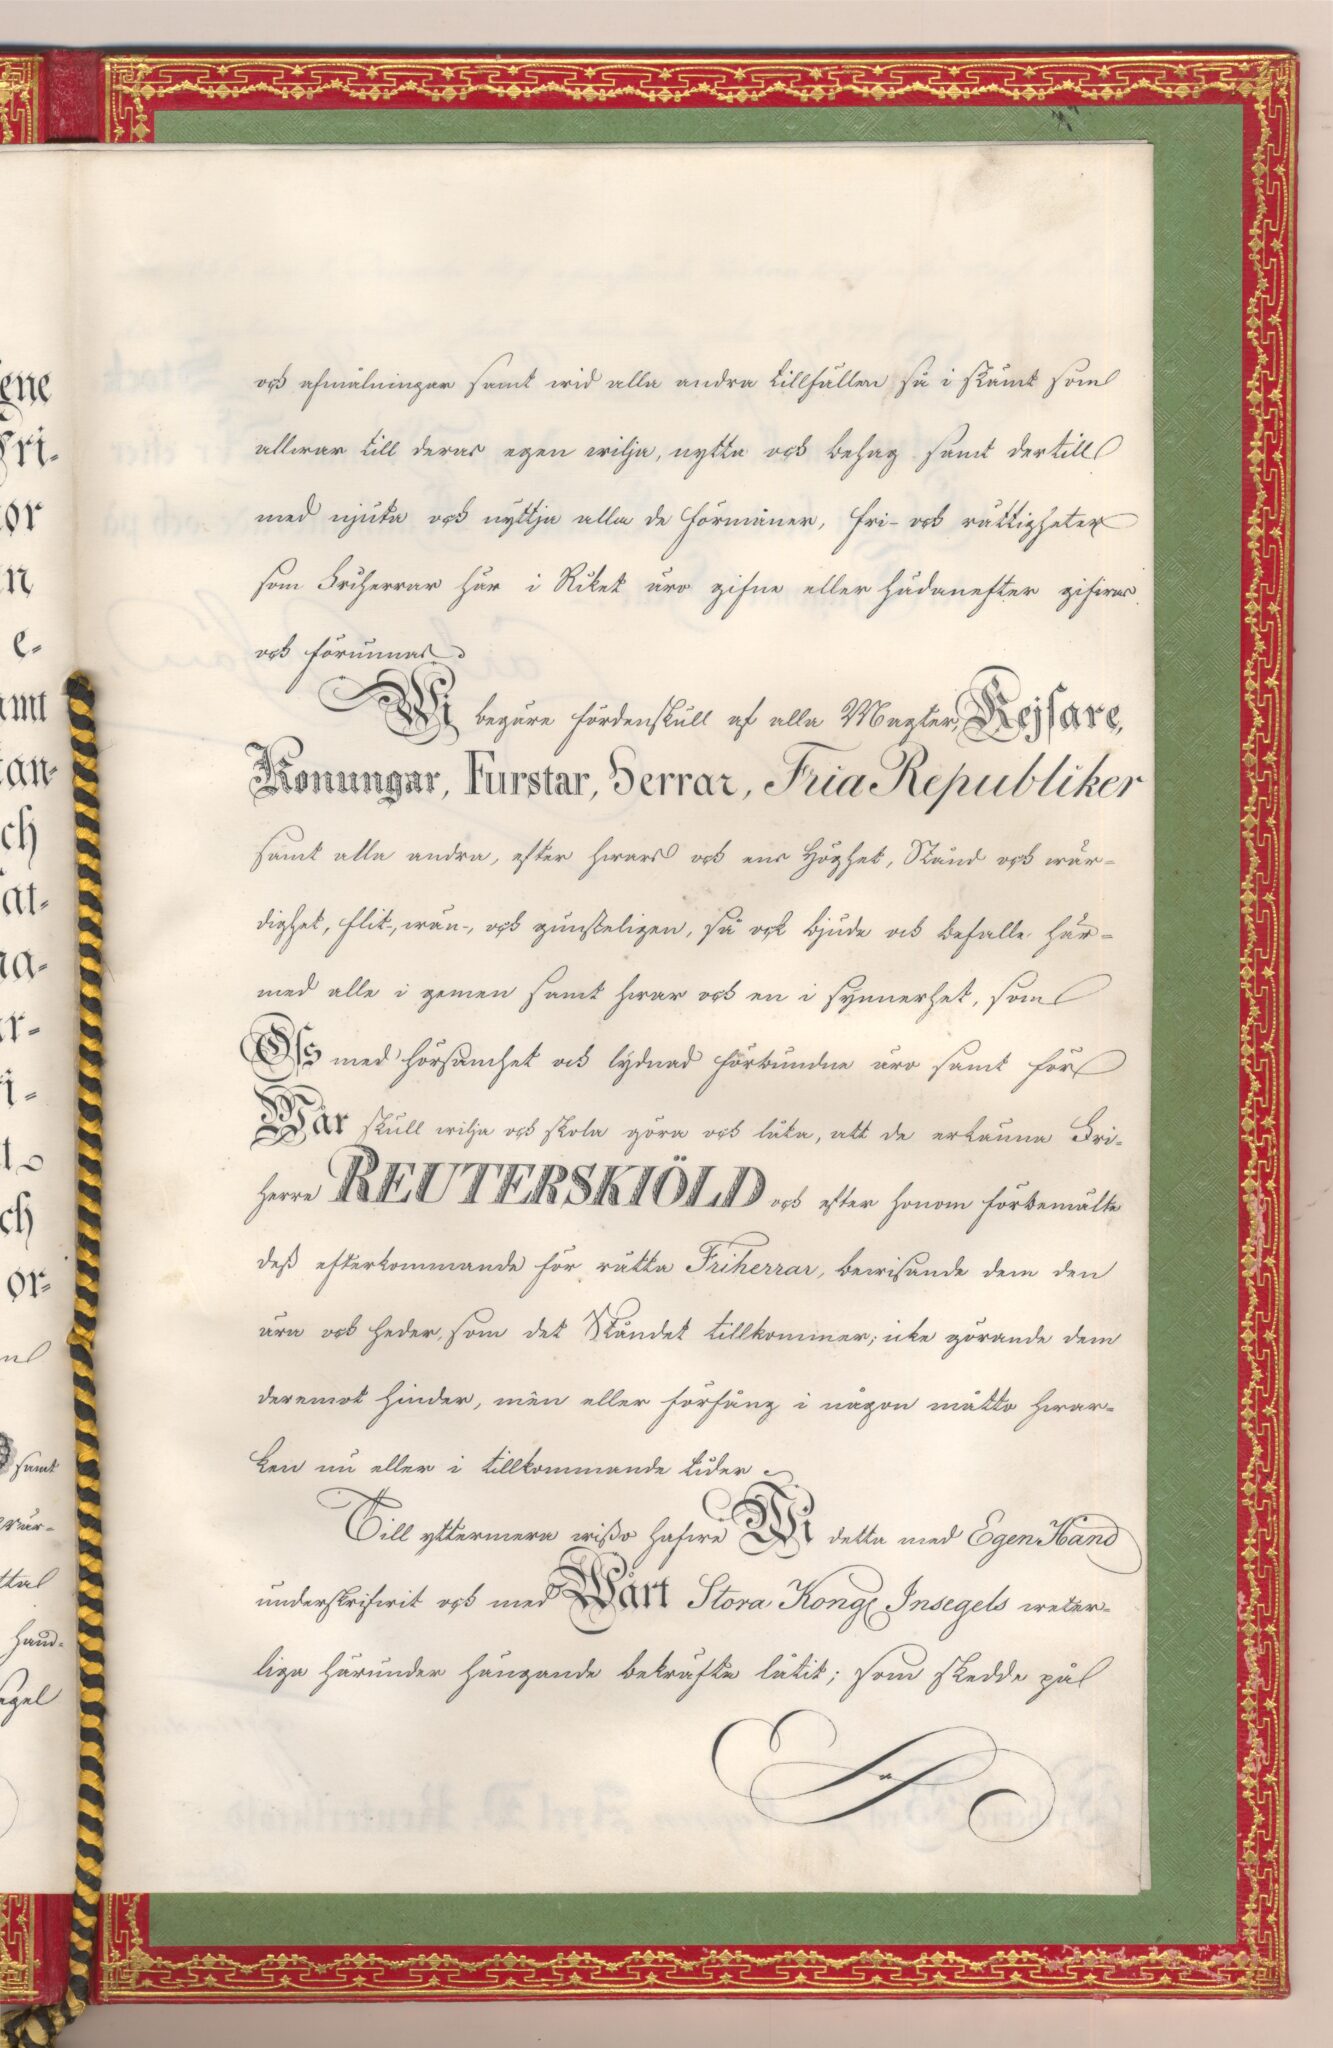 och afmålningar samt wid alla andra tillfällen så i skämt som
allwar till deras egen wilja, nytta och behag samt dertill
med njuta och nyttja alla de förmåner, fri- och rättigheter
som Friherrar här i Riket äro gifne eller hädanefter gifwas
och förunnas.
Wi begäre fördenskull af alla Magter, Kejsare,
Konungar, Furstar, Herrar, Fria Republiker
samt alla andra, efter hwars och ens Höghet, Stånd och wär-
dighet, flit-, wän-, och gunsteligen, så ock bjude och befalle här-
med alle i gemen samt hwar och en i synnerhet, som
Oss med hörsamhet och lydnad förbundne äro samt för
Wår skull wilja och skola göra och låta, att de erkänna Fri-
herre REUTERSKIÖLD och efter honom förbemälte
deß efterkommande för rätta Friherrar, bewisande dem den
ära och heder, som det Ståndet tillkommer; icke görande dem
deremot hinder, mén eller förfång i någon måtto hwar-
ken nu eller i tillkommande tider.
Till yttermera wißo hafwe Wi detta med Egen Hand
underskrifwit och med Wårt Stora Kongl. Insegels weter-
liga härunder hängande bekräfta låtit; som skedde på
ene
Fri-
or
n
e-
amt
an-
ch
at-
na-
r-
i-
t
ch
or-
samt
wär-
ttal
hand-
egel